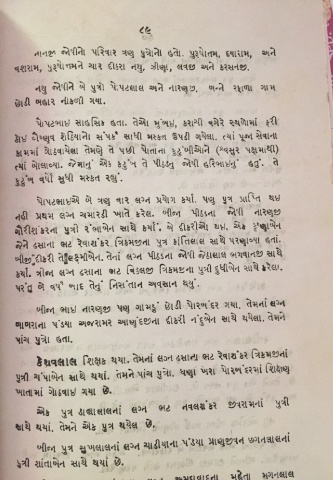 ૮૯
નાનજી જોષીનો પરિવાર ત્રણ પુત્રોનો હતો. પુરષોતમ, દયારામ, અને
વશરામ, પુરષોતમને ચાર દીકરા નથુ, ઝીણા, લવજી અને કરસનજી.
નથુ જોષીને બે પુત્રો પોપટલાલ અને નારણજી. બન્ને રફાળા ગામ
છોડી બહાર નીકળી ગયા.
પોપટભાઈ સાહસિક હતા. તેઓ મુંબઈ, કરાંચી વગેરે સ્થળોમાં ફરી
કોઈ વૈષ્ણવ શેઠિયાનો સંપર્ક સાધી મસ્કત ઉપડી ગયેલા. ત્યાં પૂજા સેવાના
કામમાં ગોઠવાયેલા તેમણે તે પછી પોતાના કુટુંબીઓને (શ્વસુર પક્ષમાંથી)
ત્યાં બોલાવ્યા. જેમાનું એક કુટુંબ તે પીઠડનું જોષી હરિભાઈનું હતું. તે
કુટુંબ વર્ષો સુધી મસ્કત રહ્યું.
પોપટભાઈએ બે ત્રણ વાર લગ્ન પ્રયોગ કર્યા. પણ પુત્ર પ્રાપ્તિ થઈ
નહી પ્રથમ લગ્ન ચમારડી ખાતે કરેલ. બીજા પીઠડના જોષી નારણજી
ગૌરીશંકરના પુત્રી રંભાબેન સાથે કર્યા. બે દીકરીઓ થઈ. એક કૃષ્ણાબેન
જેને ઢસાના ભટ રેવાશંકર ત્રિકમજીના પુત્ર કાંતિલાલ સાથે પરણાવ્યા હતાં.
બીજી દીકરી તે લક્ષ્મીબેન. તેનાં લગ્ન પીઠડના જોષી જેઠાલાલ ભગવાનજી સાથે
કર્યા. ત્રીજા લગ્ન ઢસાના ભટ વિઠલજી ત્રિકમજીના પુત્રી દુધીબેન સાથે કરેલા.
પરંતુ બે વર્ષ બાદ તેનું નિઃસંતાન અવસાન થયું.
બીજા ભાઈ નારણજી પણ ગામડું છોડી પોરબંદર ગયા. તેમનાં લગ્ન
બાબરાના પંડયા અજરામર આણંદજીના દીકરી નંદુબેન સાથે થયેલા. તેમને
પાંચ પુત્રો હતા.
કેશવલાલ શિક્ષક થયા. તેમનાં લગ્ન ઢસાના ભટ રેવાશંકર ત્રિકમજીનાં
પુત્રી ચંપાબેન સાથે થયાં. તેમને પાંચ પુત્રો. ઘણા ખરા પોરબંદરમાં શિક્ષણ
ખાતામાં ગોઠવાઈ ગયા છે.
એક પુત્ર હીરાલાલનાં લગ્ન ભટ નવલશંકર જીવરામનાં પુત્રી
સાથે થયાં. તેમને એક પુત્ર થયેલ છે.
બીજા પુત્ર સુખલાલનાં લગ્ન ચાઢીયાના પંડયા પ્રાણજીવન છગનલાલનાં
પુત્રી શાંતાબેન સાથે થયાં છે.
અમદાવાદના મહેતા મગનલાલ